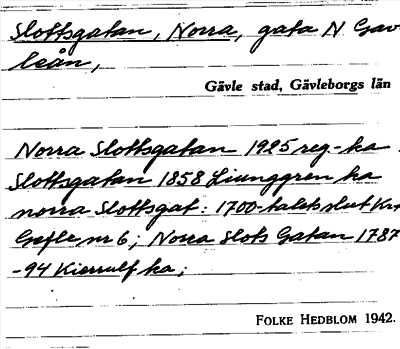 Slottsgatan, Norra, gata N Gav
leån,
Gävle stad, Gävleborgs län
Norra Slottsgatan 1925 reg-ka
Slottsgatan 1858 Ljunggren ka
norra Slottsgat: 1700-talets slut Krt
Gefle nr 6; Norra Slots Gatan 1787
-94 Kierrulf ka;
FOLKE HEDBLOM 1942.